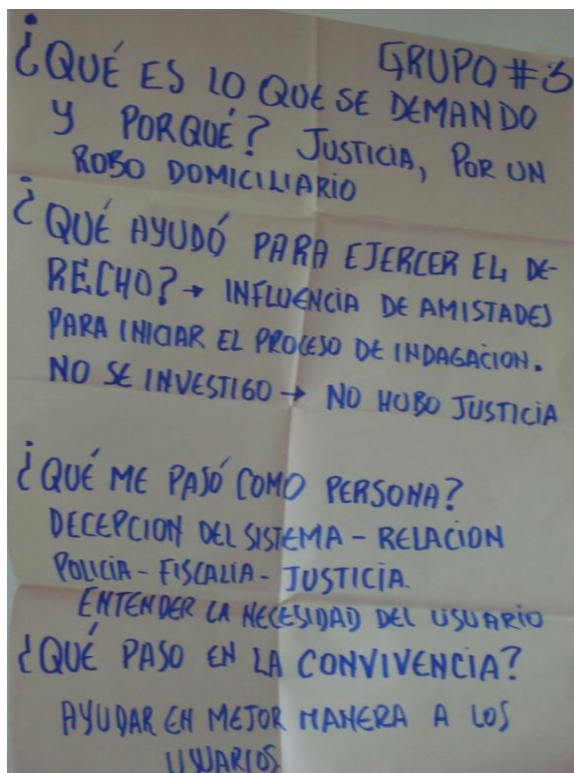 GRUPO #3
¿QUÉ ES LO QUE SE DEMANDO
Y PORQUÉ? JUSTICIA, POR UN
ROBO DOMICILIARIO
¿QUÉ AYUDÓ PARA EJERCER EL DE-
RECHO? → INFLUENCIA DE AMISTADES
PARA INICIAR EL PROCESO DE INDAGACION.
NO SE INVESTIGO → NO HUBO JUSTICIA
¿QUÉ ME PASÓ COMO PERSONA?
DECEPCION DEL SISTEMA - RELACION
POLICIA - FISCALIA - JUSTICIA.
ENTENDER LA NECESIDAD DEL USUARIO
¿QUÉ PASO EN LA CONVIVENCIA?
AYUDAR EN MEJOR MANERA A LOS
USUARIOS